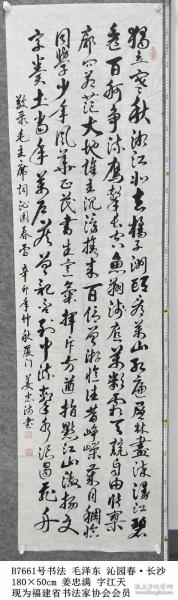 独立寒秋湘江北去橘子洲头看万山红遍层林尽染漫江碧
透百舸争流鹰击长空鱼翔浅底万类霜天竞自由怅寥
廓问苍茫大地谁主沉浮携来百侣曾游忆往昔峥嵘岁月稠恰
同学少年风华正茂书生意气挥斥方遒指点江山激扬文
字粪土当年万户侯曾记否到中流击水浪遏飞舟
敬录毛主席词沁园春长沙 辛卯年仲秋厦门姜忠满书
B7661号书法 毛泽东 沁园春·长沙
180×50cm 姜忠满 字江天
现为福建省书法家协会会员